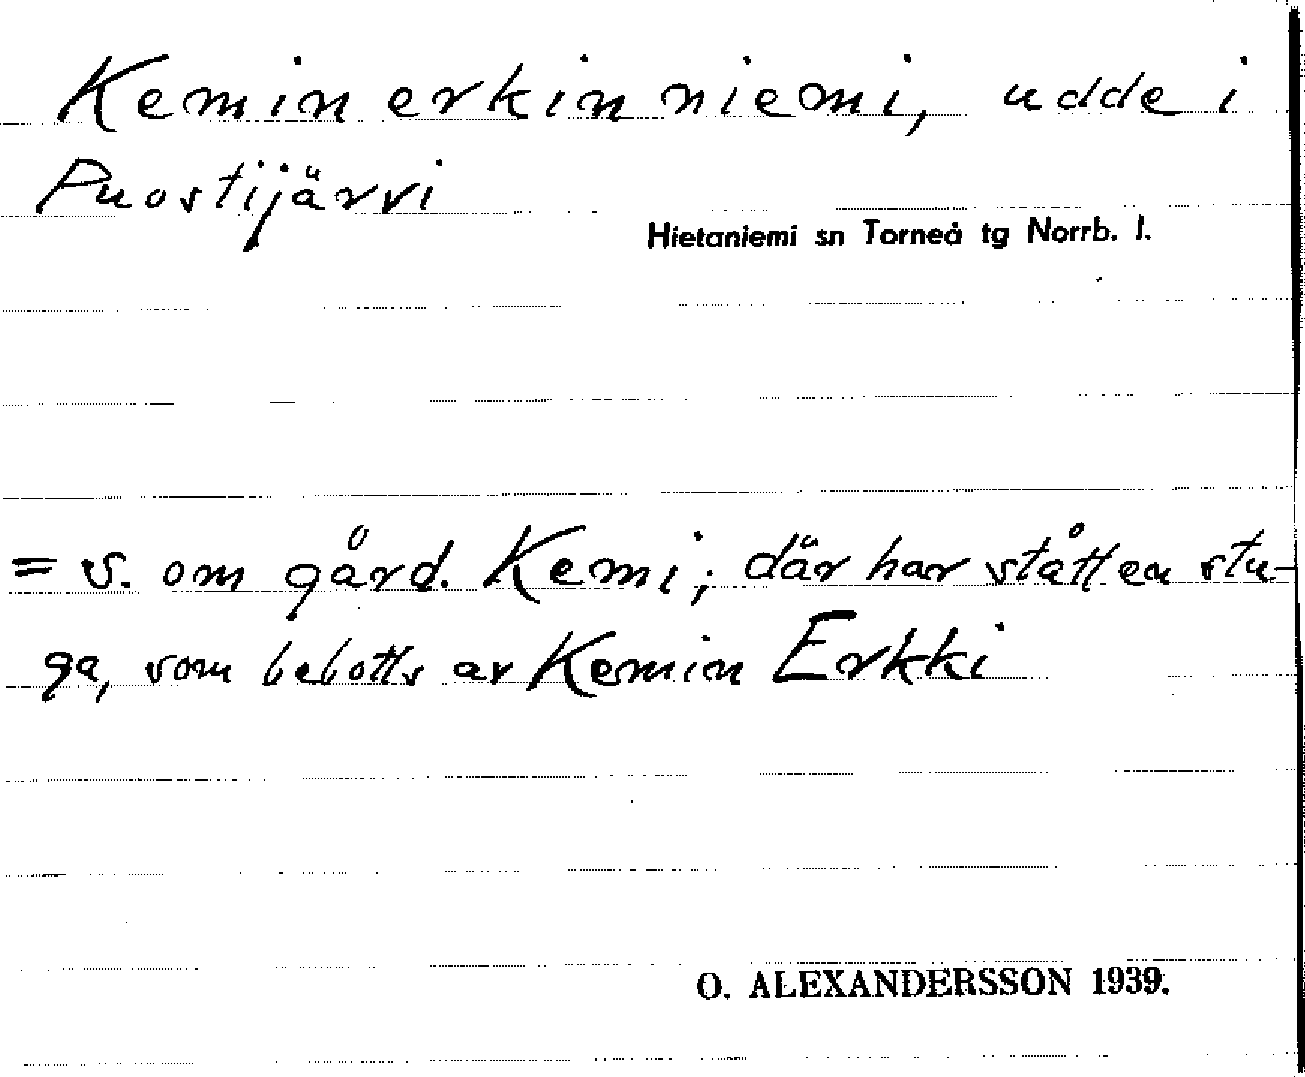 Keminerkinniemi, udde i
Puostijärvi
Hietaniemi sn Torneå tg Norrb. l.
= s. om gård. Kemi; där har stått en stu-
ga, som bebotts av Kemin Erkki
O. ALEXANDERSSON 1939.